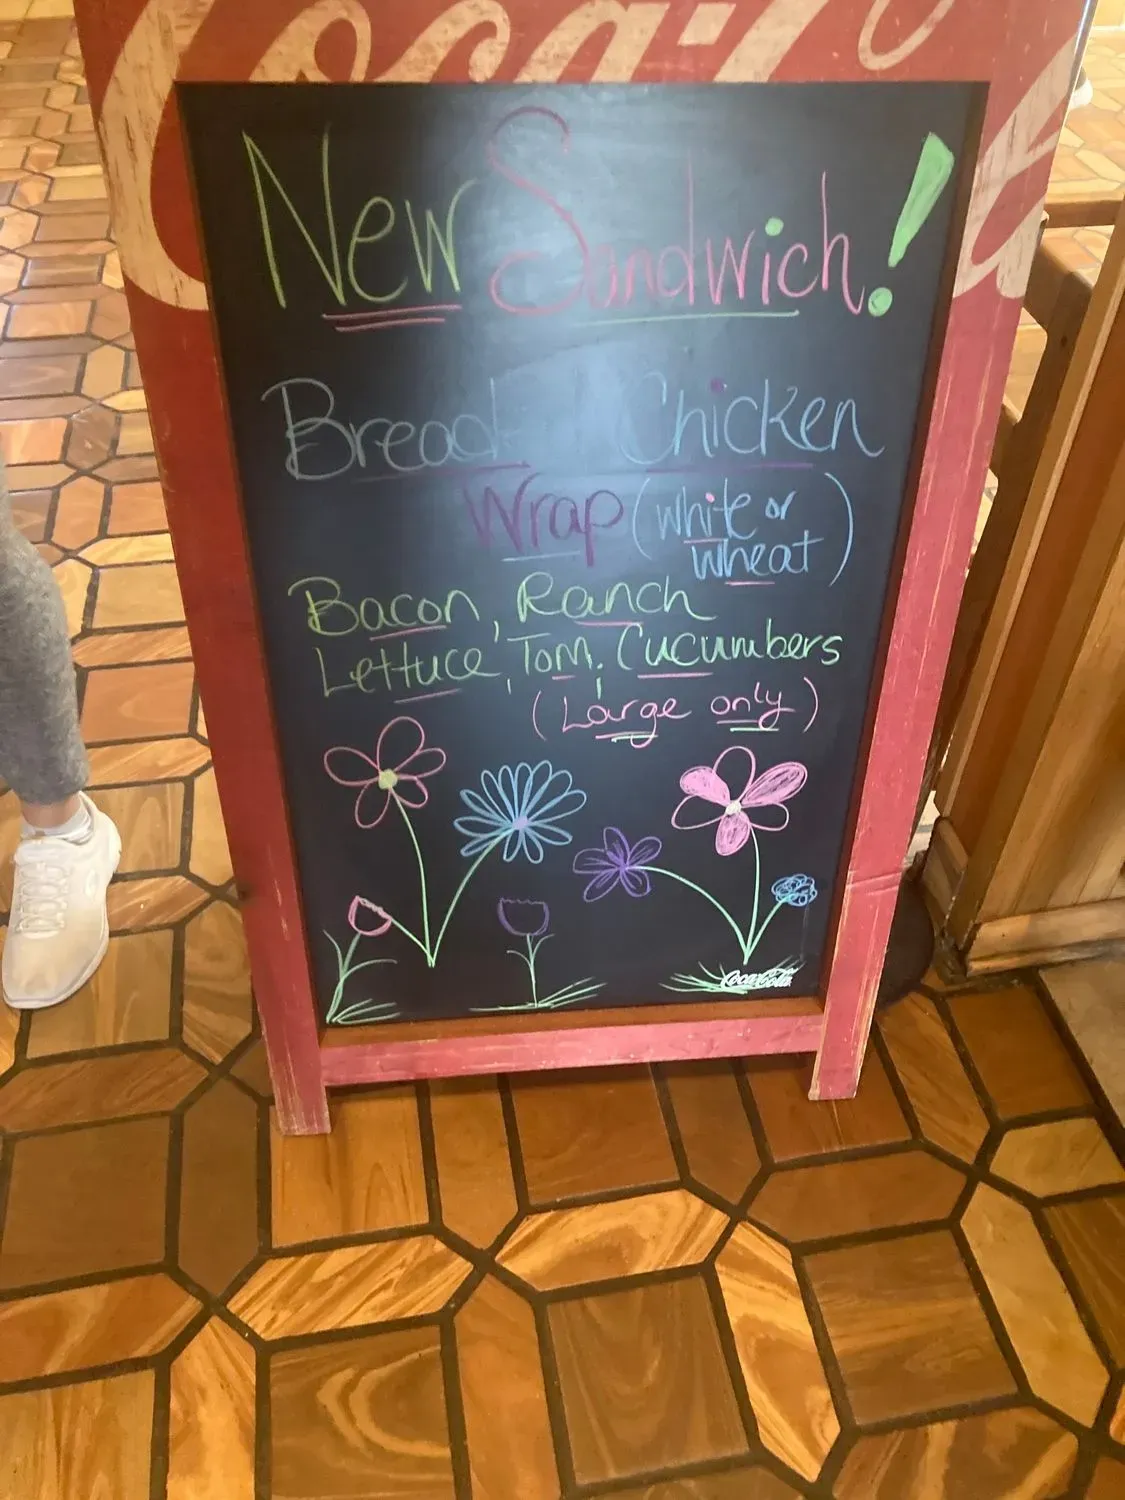 Coca-Co
New Sandwich!
Bread Chicken
Wrap (white or
wheat)
Bacon, Ranch
Lettuce, Tom, Cucumbers
(Large only)
Coca-Cola